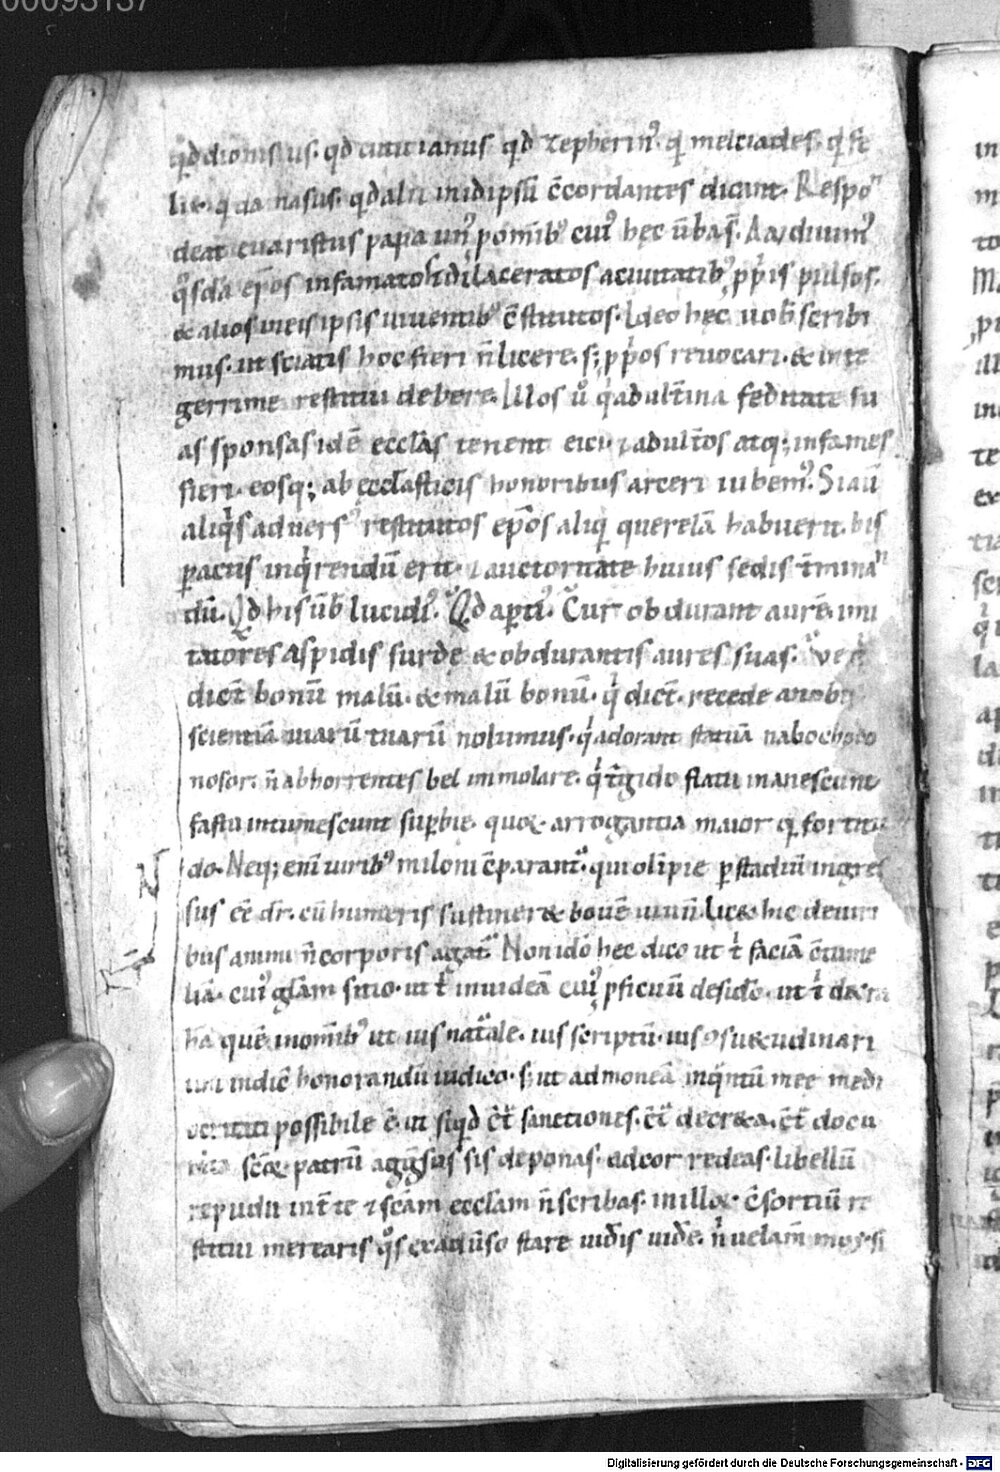 00093137
qd dionisius. qd eutitianus qd zepherin᷒. q melciades. q fe
lix. q da nasus. qd alii in idipsū c̄cordantes dicant. Respon
deat euaristus papa un᷒ pomīb᷒ cui᷒ hęc ūba s̄. Audiuim᷒
q̊sdā ep̄os infamatos dilaceratos aciuitatib᷒ ꝓp̄is pulsos.
& alios uieis ipsis uiuentib᷒ c̄stitutos. Ideo hęc uob̄ scribi
mus. ut sciatis hoc fieri n̄ licere. s; ꝓp̄os reuocari. & inte
gerrime restitui debere. Illos ů q̇ adult̄ina feditate su
as sponsas idē eccl̄as tenent eici. ⁊ adult̄os atq; infames
fieri. eosq; ab eccl̄asticis honoribus arceri iubem᷒. Si aū
aliq̇s aduers᷒ restitutos ep̄os aliq̇ querelā habuerit. his
ꝑactis inq̇rendū erit. ⁊ auctoritate huius sedis t̄minan
dū. Qd his ūb̄ lucidi᷒. Qd aꝑti᷒. Cur obdurant aures. imi
tatores aspidis surdę & obdurantis aures suas. Ve q̇
dicīt bonū malū. & malū bonū. q̇ dicīt. recede a nobis
scientiā uiarū tuarū nolumus. q̇ adorant statuā nabochodo
nosor. n̄ abhorrentes bel immolare. q̇ t̄gido flatu inanescunt
fastu intumescunt suꝑbię. quoꝝ arrogantia maior q̄ fortitu
do. Neq; eni uirib᷒ miloni c̄parant᷒. qui olīpie ꝑ stadiū ingres
sus ee dr̄. cū humeris sustiner& bouē uiuū. Lic& hic de uiri
bus animi n̄ corporis agat᷒. Non idō hec dico ut t̄ faciā c̄tume
liā. cui᷒ glām sitio. ut t̄ inuideā cui᷒ ꝓficuū desidō. ut t̄ detra
hā quē in omīb᷒ ut ius nat᷒ale. ius scriptū. ius ꝯsu&udinari
um indic̄ honorandū iudico. s; ut admoneā inq̇ntū mee medi
ocritati possibile ē. ut siqd c̄t sanctiones. c̄t decr&a. c̄t docu
mta sc̄oꝝ patrū aggsus sis deponas. ad cor redeas. libellū
repudii int̄ te ⁊ sc̄am eccl̄am n̄ scribas. in illoꝝ c̄sortiū re
stitui mertaris q̊s ex adūso stare uidīs uidē. n̄ uelam moy si
Digitalisierung gefördert durch die Deutsche Forschungsgemeinschaft - DFG